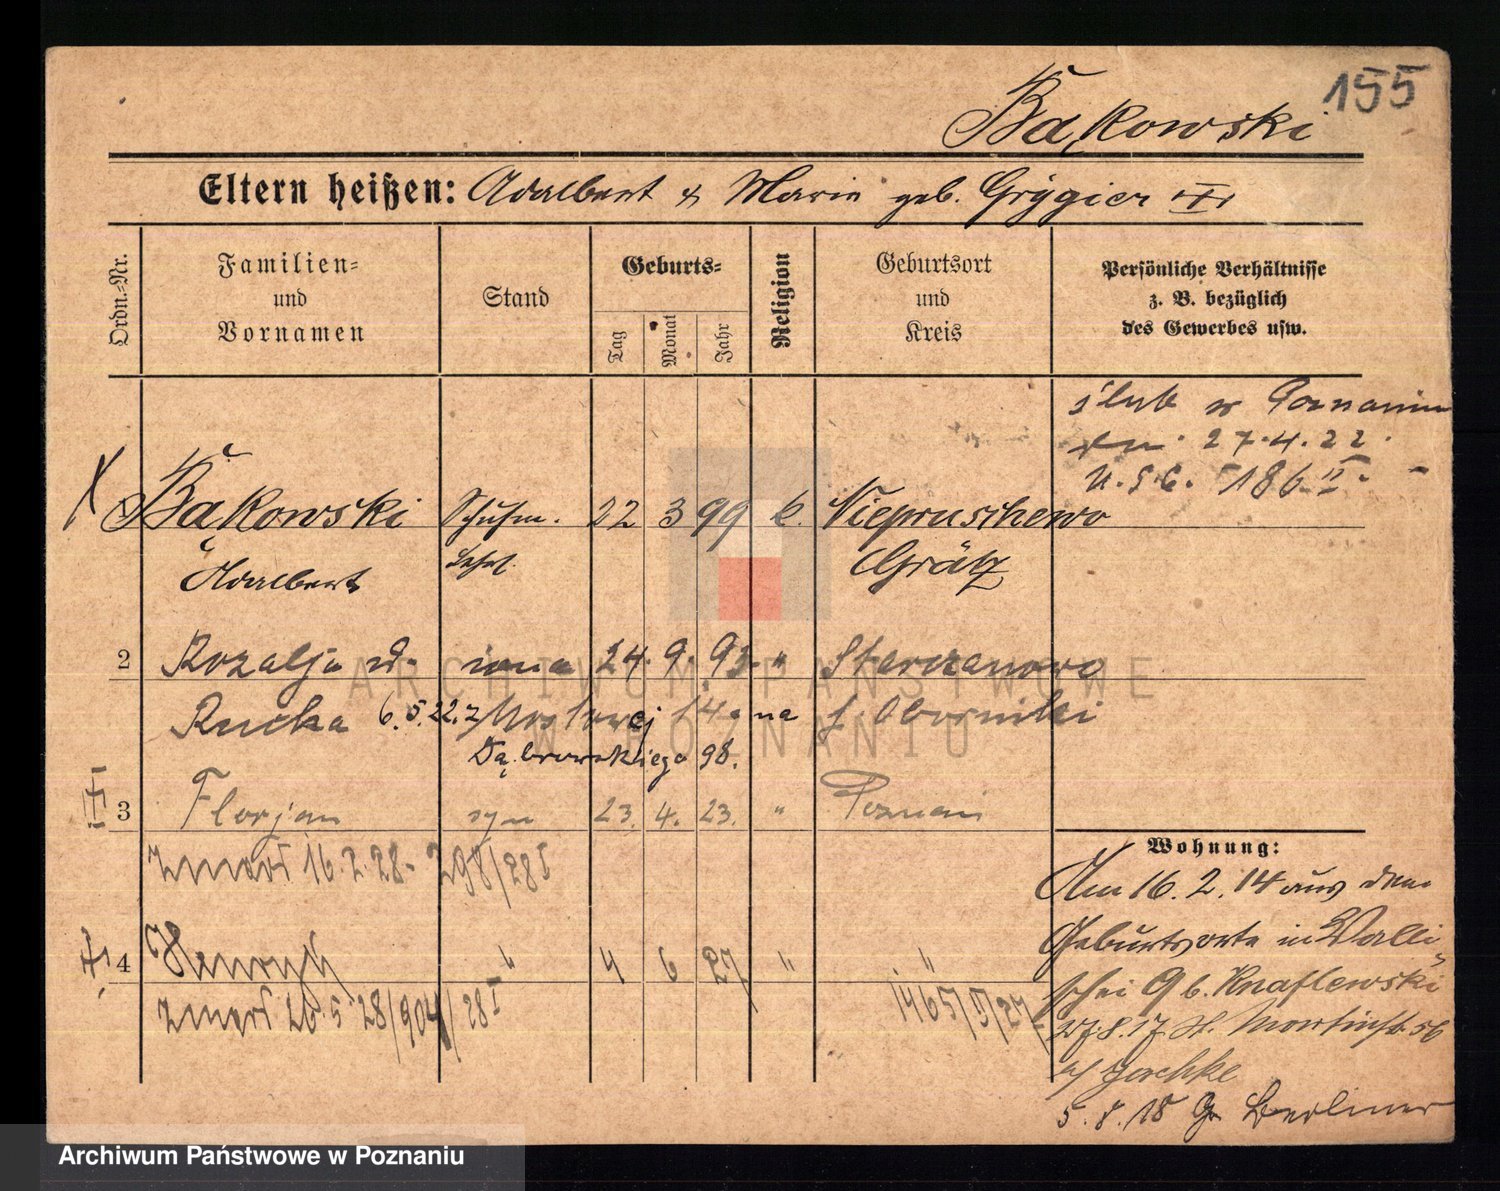 155
Bąkowski
Eltern heißen: Adalbert & Marie geb. Grygier
Ordn.-Nr.
Familien-
und
Vornamen
Stand
Geburts-
Tag
Monat
Jahr
Religion
Geburtsort
und
Kreis
Persönliche Verhältnisse
z. B. bezüglich
des Gewerbes usw.
ślub w Poznaniu
dn. 27.4.22.
U.S.C. 186 II
Bąkowski Schuhm. 22 3 99 k. Niepruschewo
Adalbert Lehrl. Grätz
2 Rozalja ż. 24. 9. 93. " Starczanowo
Rucka 6.5.22. z Mostowej 14a na p. Oborniki
Dąbrowskiego 98.
3 Florjan syn 23. 4. 23. " Poznań
zmarł 16.2.28. 298/28 I
4 Henryk " 4 6 27 " "
zmarł 26.5.28/904/28 I
1465/II/27
Wohnung:
Am 16.2.14 aus dem
Geburtsorte in Walli
schei 9 b. Knaflewski
27.8.17 St. Martinstr. 56
b/ Jaschke
5.8.18 Gr. Berliner
ARCHIWUM PAŃSTWOWE
W POZNANIU
Archiwum Państwowe w Poznaniu